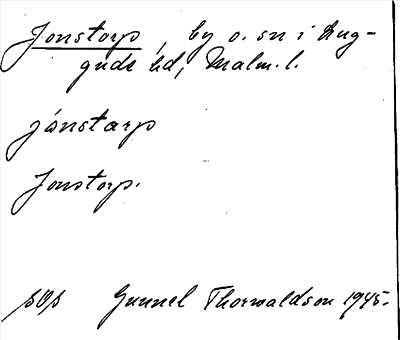 Jonstorp, by o. sn i Lug-
gude hd, Malm. l.
jónstarp
Jonstorp.
Gunnel Thorwaldson 1945.